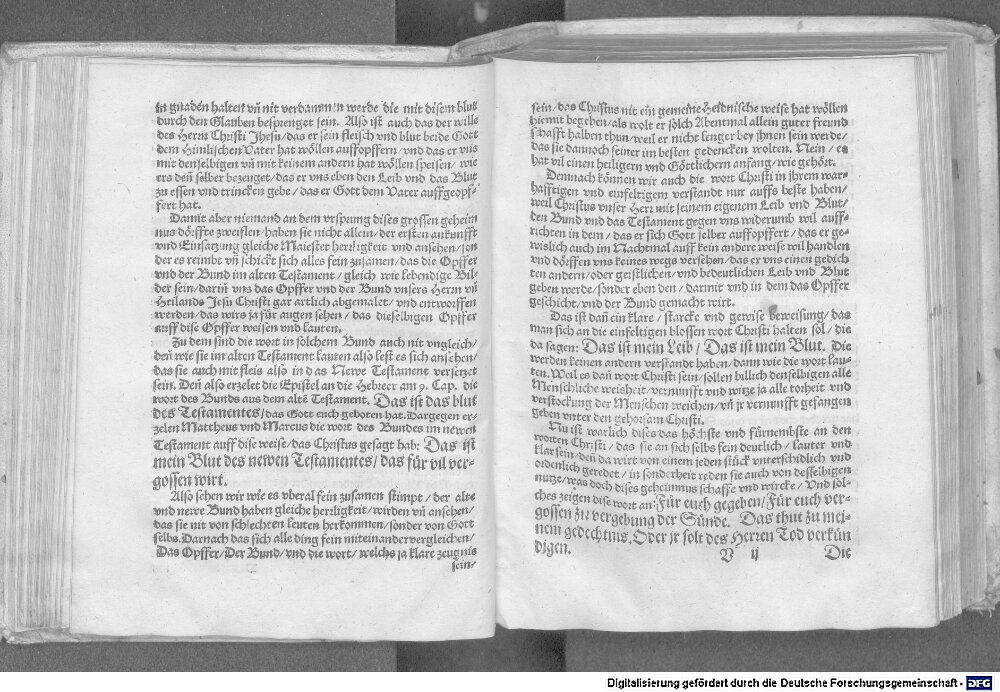 in gnaden halten vñ nit verdammen werde die mit disem blut
durch den Glauben besprenget sein. Also ist auch das der wille
des Herrn Christi Jhesu / das er sein fleisch vnd blut beide Gott
dem Himlischen Vater hat wöllen auffopffern / vnd das er vns
mit denselbigen vñ mit keinem andern hat wöllen speisen / wie
ers deñ selber bezeuget / das er vns eben den Leib vnd das Blut
zu essen vnd trincken gebe / das er Gott dem Vater auffgeopf-
fert hat.
Damit aber niemand an dem vrsprung dises grossen geheim
nus dörffte zweiflen / haben sie nicht allein / der ersten ankunfft
vnd Einsatzung gleiche Maiestet herrligkeit vnd ansehen / son
der es reimbt vñ schickt sich alles fein zusamen / das die Opffer
vnd der Bund im alten Testament / gleich wie lebendige Bil-
der sein / dariñ vns das Opffer vnd der Bund vnsers Herrn vñ
Heilands Jesu Christi gar artlich abgemalet / vnd entworffen
werden / das wirs ja für augen sehen / das dieselbigen Opffer
auff dise Opffer weisen vnd lauten.
Zu dem sind die wort in solchem Bund auch nit vngleich /
deñ wie sie im alten Testament lauten also lest es sich ansehen /
das sie auch mit fleis also in das Newe Testament versetzet
sein. Deñ also erzelet die Epistel an die Hebreer am 9. Cap. die
wort des Bunds aus dem altẽ Testament. Das ist das blut
des Testamentes / das Gott euch geboten hat. Dargegen er-
zelen Mattheus vnd Marcus die wort des Bundes im newen
Testament auff dise weise / das Christus gesagt hab: Das ist
mein Blut des newen Testamentes / das für vil ver-
gossen wirt.
Also sehen wir wie es vberal fein zusamen stimpt / der alte
vnd newe Bund haben gleiche herrligkeit / wirden vñ ansehen /
das sie nit von schlechten leuten herkommen / sonder von Gott
selbs. Darnach das sich alle ding fein miteinander vergleichen /
Das Opffer / Der Bund / vnd die wort / welchs ja klare zeugnis
sein /
sein / das Christus nit ein gemeine Heidnische weise hat wöllen
hiemit begehen / als wolt er solch Abentmal allein guter freund
schafft halben thun / weil er nicht lenger bey jhnen sein werde /
das sie dannoch seiner im besten gedencken wolten. Nein / es
hat vil einen heiligern vñ Göttlichern anfang / wie gehört.
Demnach können wir auch die wort Christi in jhrem war-
hafftigen vnd einfeltigem verstandt nur auffs beste haben /
weil Christus vnser Herr mit seinem eigenem Leib vnd Blut /
den Bund vnd das Testament gegen vns widerumb wil auff-
richten in dem / das er sich Gott selber auffopffert / das er ge-
wislich auch im Nachtmal auff kein andere weise wil handlen
vnd dörffen vns keines wegs versehen / das er vns einen gedich
ten andern / oder geistlichen / vnd bedeutlichen Leib vnd Blut
geben werde / sonder eben den / darmit vnd in dem das Opffer
geschicht / vnd der Bund gemacht wirt.
Das ist dañ ein klare / starcke vnd gewise beweisung / das
man sich an die einfeltigen blossen wort Christi halten sol / die
da sagen: Das ist mein Leib / Das ist mein Blut. Die
werden keinen andern verstandt haben / dann wie die wort lau-
ten. Weil es dañ wort Christi sein / sollen billich denselbigen alle
Menschliche weisheit / vernunfft vnd witze ja alle torheit vnd
verstockung der Menschen weichen / vñ jr vernunfft gefangen
geben vnter den gehorsam Christi.
Nu ist warlich dises das höchste vnd fürnembste an den
worten Christi / das sie an sich selbs fein deutlich / lauter vnd
klar sein / deñ da wirt von einem jeden stück vnterschidlich vnd
ordenlich geredet / in sonderheit reden sie auch von desselbigen
nutze / was doch dises geheimnus schaffe vnd wircke / Vnd sol-
ches zeigen dise wort an: Für euch gegeben / Für euch ver-
gossen zu vergebung der Sünde. Das thut zu mei-
nem gedechtnis, Oder jr solt des Herren Tod verkün
digen.
V ij Die
Digitalisierung gefördert durch die Deutsche Forschungsgemeinschaft - DFG